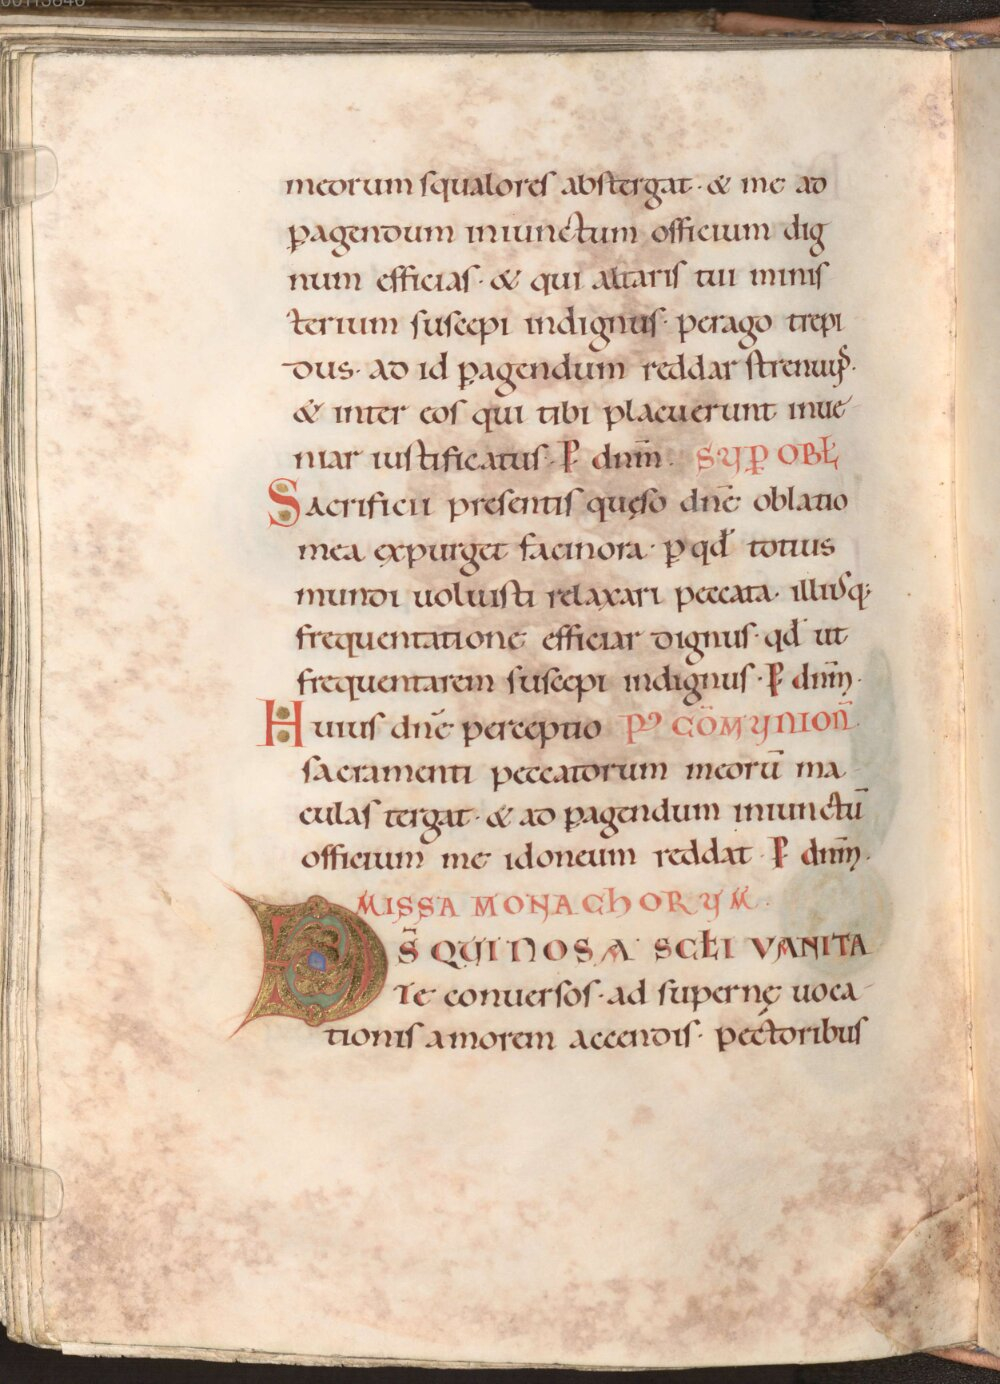 meorum squalores abstergat · & me ad
p̲agendum iniunctum officium dig
num efficias · & qui altaris tui minis
terium suscepi indignus · perago trepi
dus · ad id p̲agendum reddar strenuus ·
& inter eos qui tibi placuerunt inue
niar iustificatus · P̲ dnm̄ · SUP̲ OBŁ
Sacrificii presentis quęso dnē oblatio
mea expurget facinora · p̲ qđ totius
mundi uoluisti relaxari peccata · illiusq;
frequentatione efficiar dignus · qđ ut
frequentarem suscepi indignus · P̲ dnm̄ ·
Huius dnē perceptio P' CŌMUNION̄
sacramenti peccatorum meorū ma
culas tergat · & ad p̲agendum iniunctū
officium me idoneum reddat · P̲ dnm̄ ·
MISSA MONACHORUM ·
DS̄ QUI NOS A SCŁI VANITA
te conuersos · ad supernę uoca
tionis amorem accendis · pectoribus